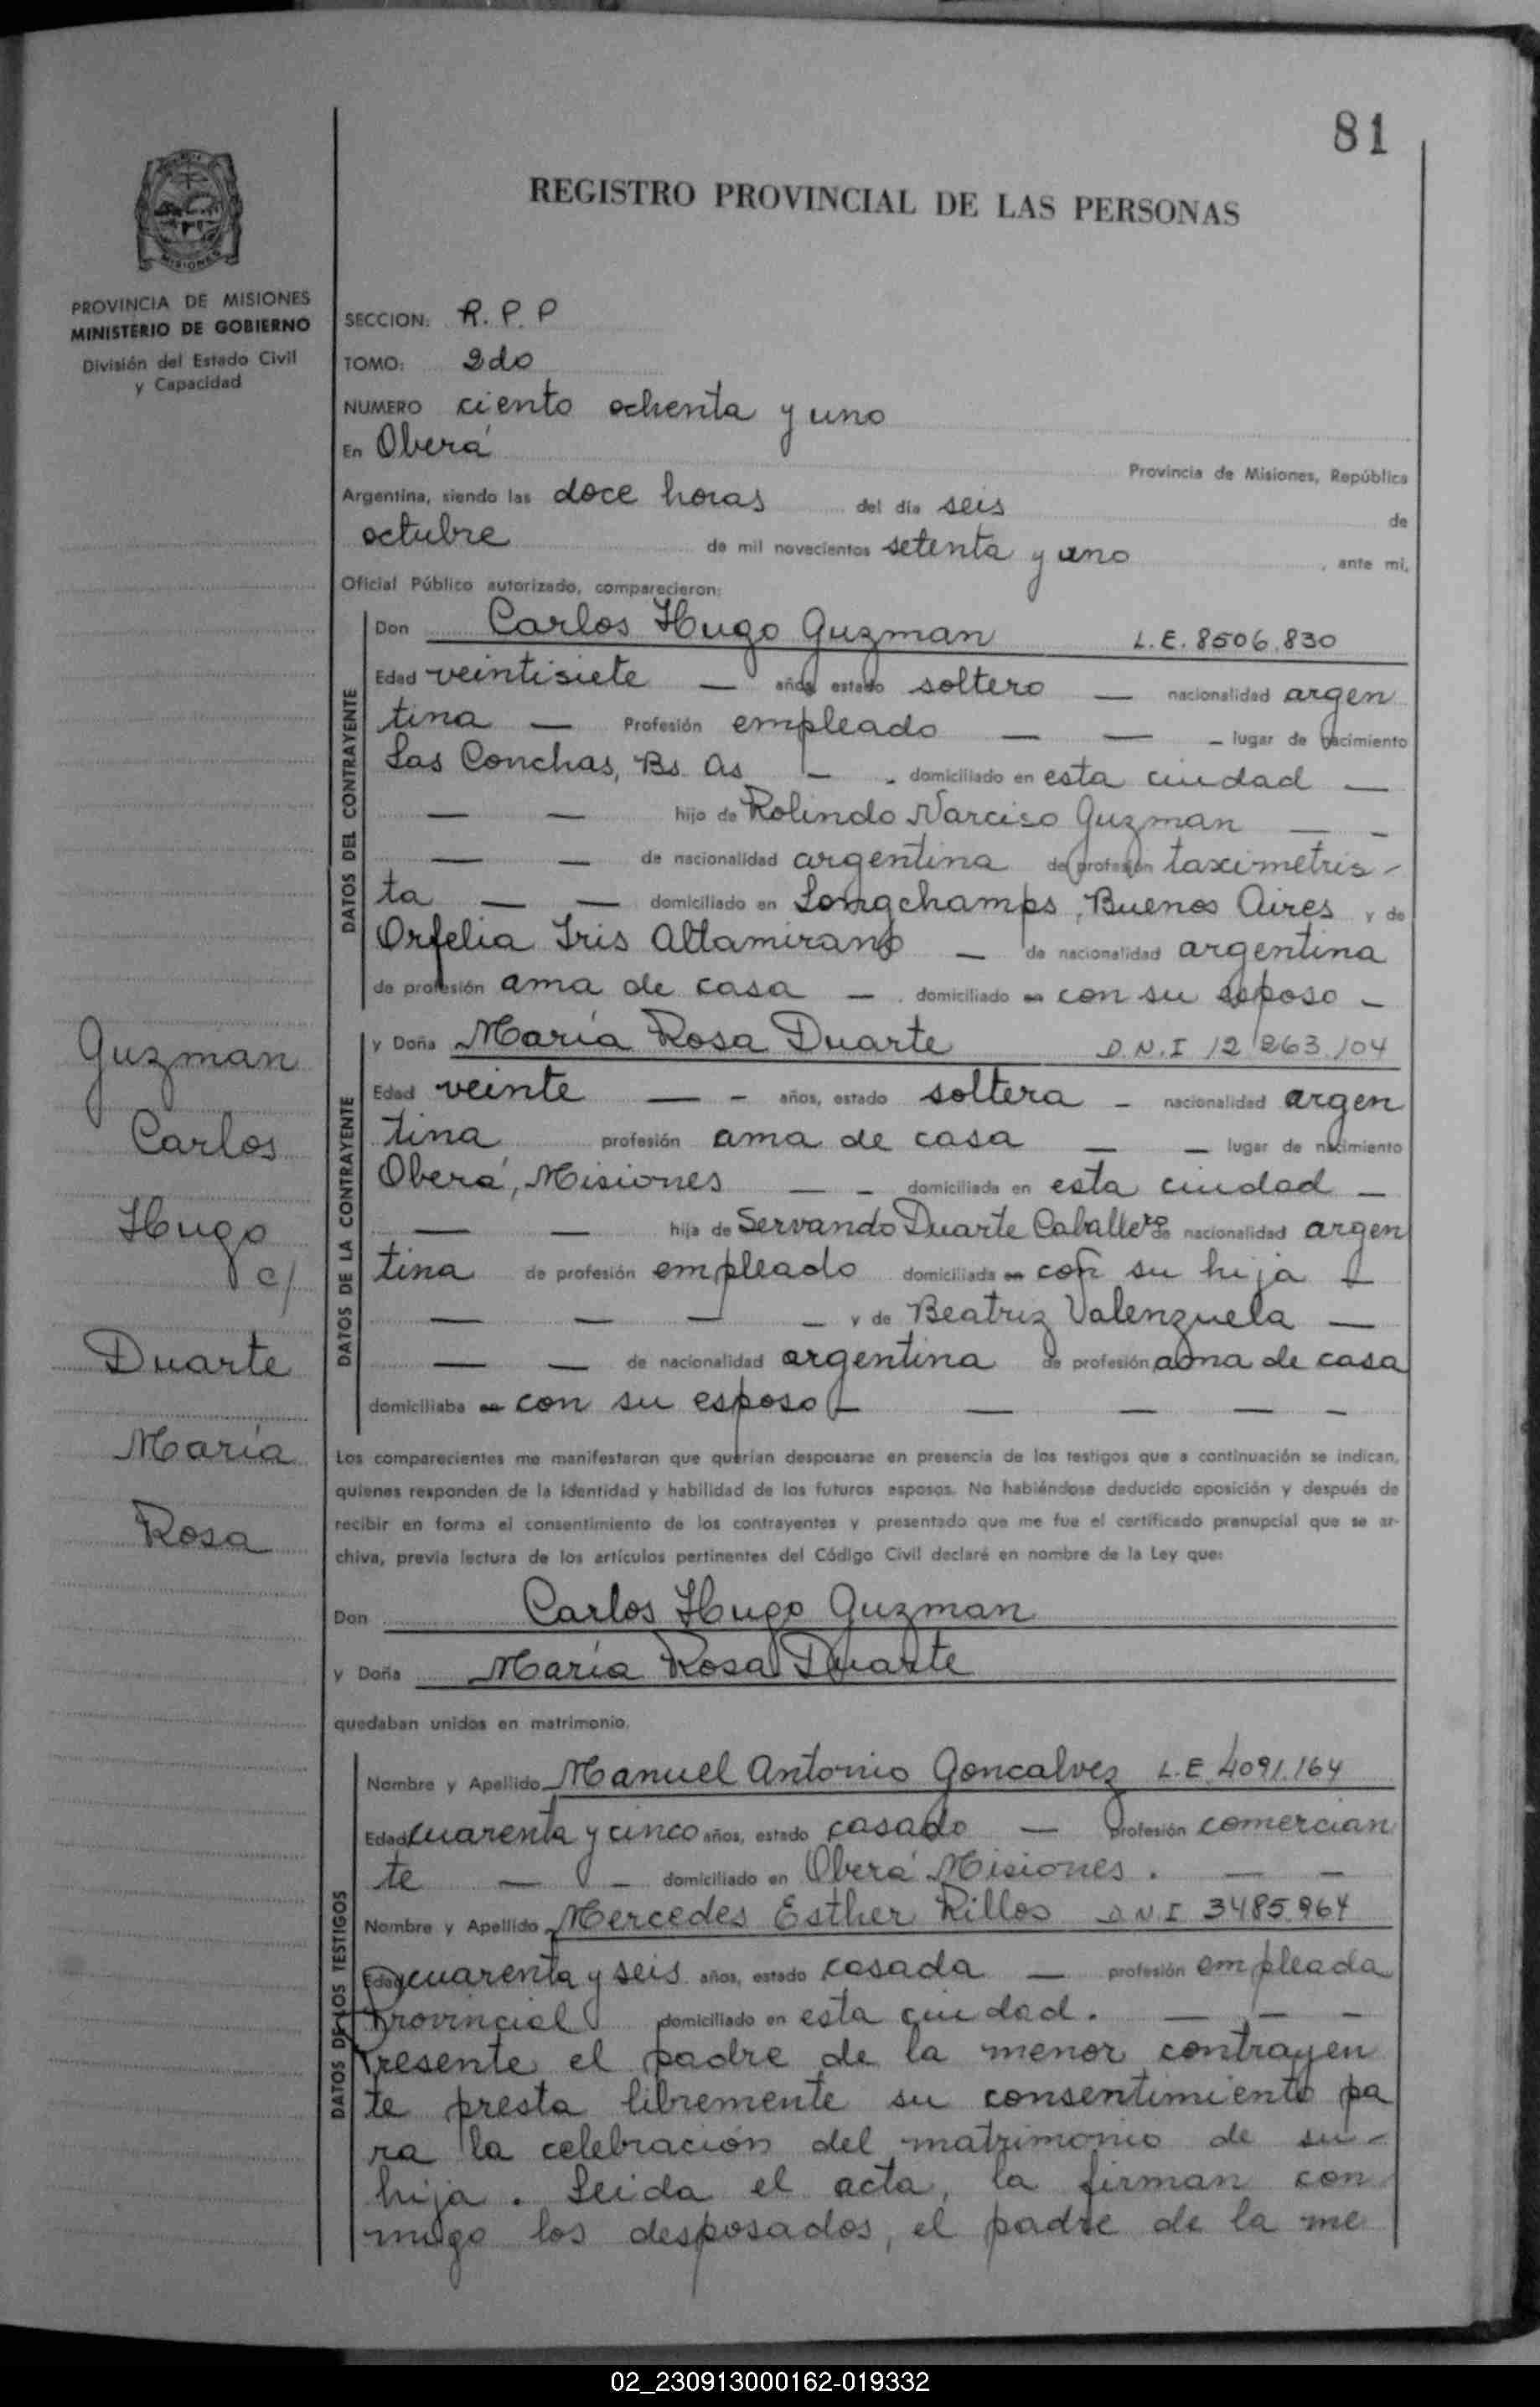 81
REGISTRO PROVINCIAL DE LAS PERSONAS
MISIONES
PROVINCIA DE MISIONES
MINISTERIO DE GOBIERNO
División del Estado Civil
y Capacidad
SECCION: R. P. P
TOMO: 2do
NUMERO ciento ochenta y uno
En Oberá
Provincia de Misiones, República
Argentina, siendo las doce horas del día seis de
octubre de mil novecientos setenta y uno, ante mi,
Oficial Público autorizado, comparecieron:
DATOS DEL CONTRAYENTE
Don Carlos Hugo Guzman L.E. 8506.830
Edad veintisiete — años, estado soltero — nacionalidad argen
tina — Profesión empleado — — — lugar de nacimiento
Las Conchas, Bs. As — - domiciliado en esta ciudad —
— — hijo de Rolindo Narciso Guzman — -
— — de nacionalidad argentina de profesión taximetris-
ta — — domiciliado en Longchamps, Buenos Aires y de
Orfelia Iris Altamirano — de nacionalidad argentina
de profesión ama de casa — domiciliado en con su esposo -
DATOS DE LA CONTRAYENTE
y Doña María Rosa Duarte D.N.I 12 263.104
Edad veinte — - años, estado soltera - nacionalidad argen
tina profesión ama de casa — — lugar de nacimiento
Oberá, Misiones — - domiciliada en esta ciudad —
— — hija de Servando Duarte Caballero de nacionalidad argen
tina de profesión empleado domiciliada en con su hija —
— — — — y de Beatriz Valenzuela —
— — de nacionalidad argentina de profesión ama de casa
domiciliaba en con su esposo — — — — -
Los comparecientes me manifestaron que querían desposarse en presencia de los testigos que a continuación se indican,
quienes responden de la identidad y habilidad de los futuros esposos. No habiéndose deducido oposición y después de
recibir en forma el consentimiento de los contrayentes y presentado que me fue el certificado prenupcial que se ar-
chiva, previa lectura de los artículos pertinentes del Código Civil declaré en nombre de la Ley que:
Don Carlos Hugo Guzman
y Doña María Rosa Duarte
quedaban unidos en matrimonio.
DATOS DE LOS TESTIGOS
Nombre y Apellido Manuel Antonio Goncalvez L.E. 4091.164
Edad cuarenta y cinco años, estado casado — profesión comercian
te — - domiciliado en Oberá Misiones. — -
Nombre y Apellido Mercedes Esther Rillos D.N.I 3485.964
Edad cuarenta y seis años, estado casada — profesión empleada
Provincial domiciliado en esta ciudad. — — -
Presente el padre de la menor contrayen
te presta libremente su consentimiento pa
ra la celebración del matrimonio de su-
hija. Leida el acta, la firman con
migo los desposados, el padre de la me
Guzman
Carlos
Hugo
c/
Duarte
María
Rosa
02_230913000162-019332